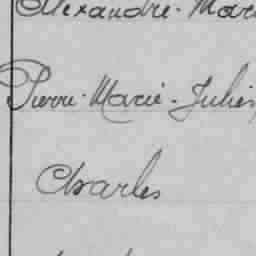 Alexandre-Mar
Pierre-Marie-Julien
Charles